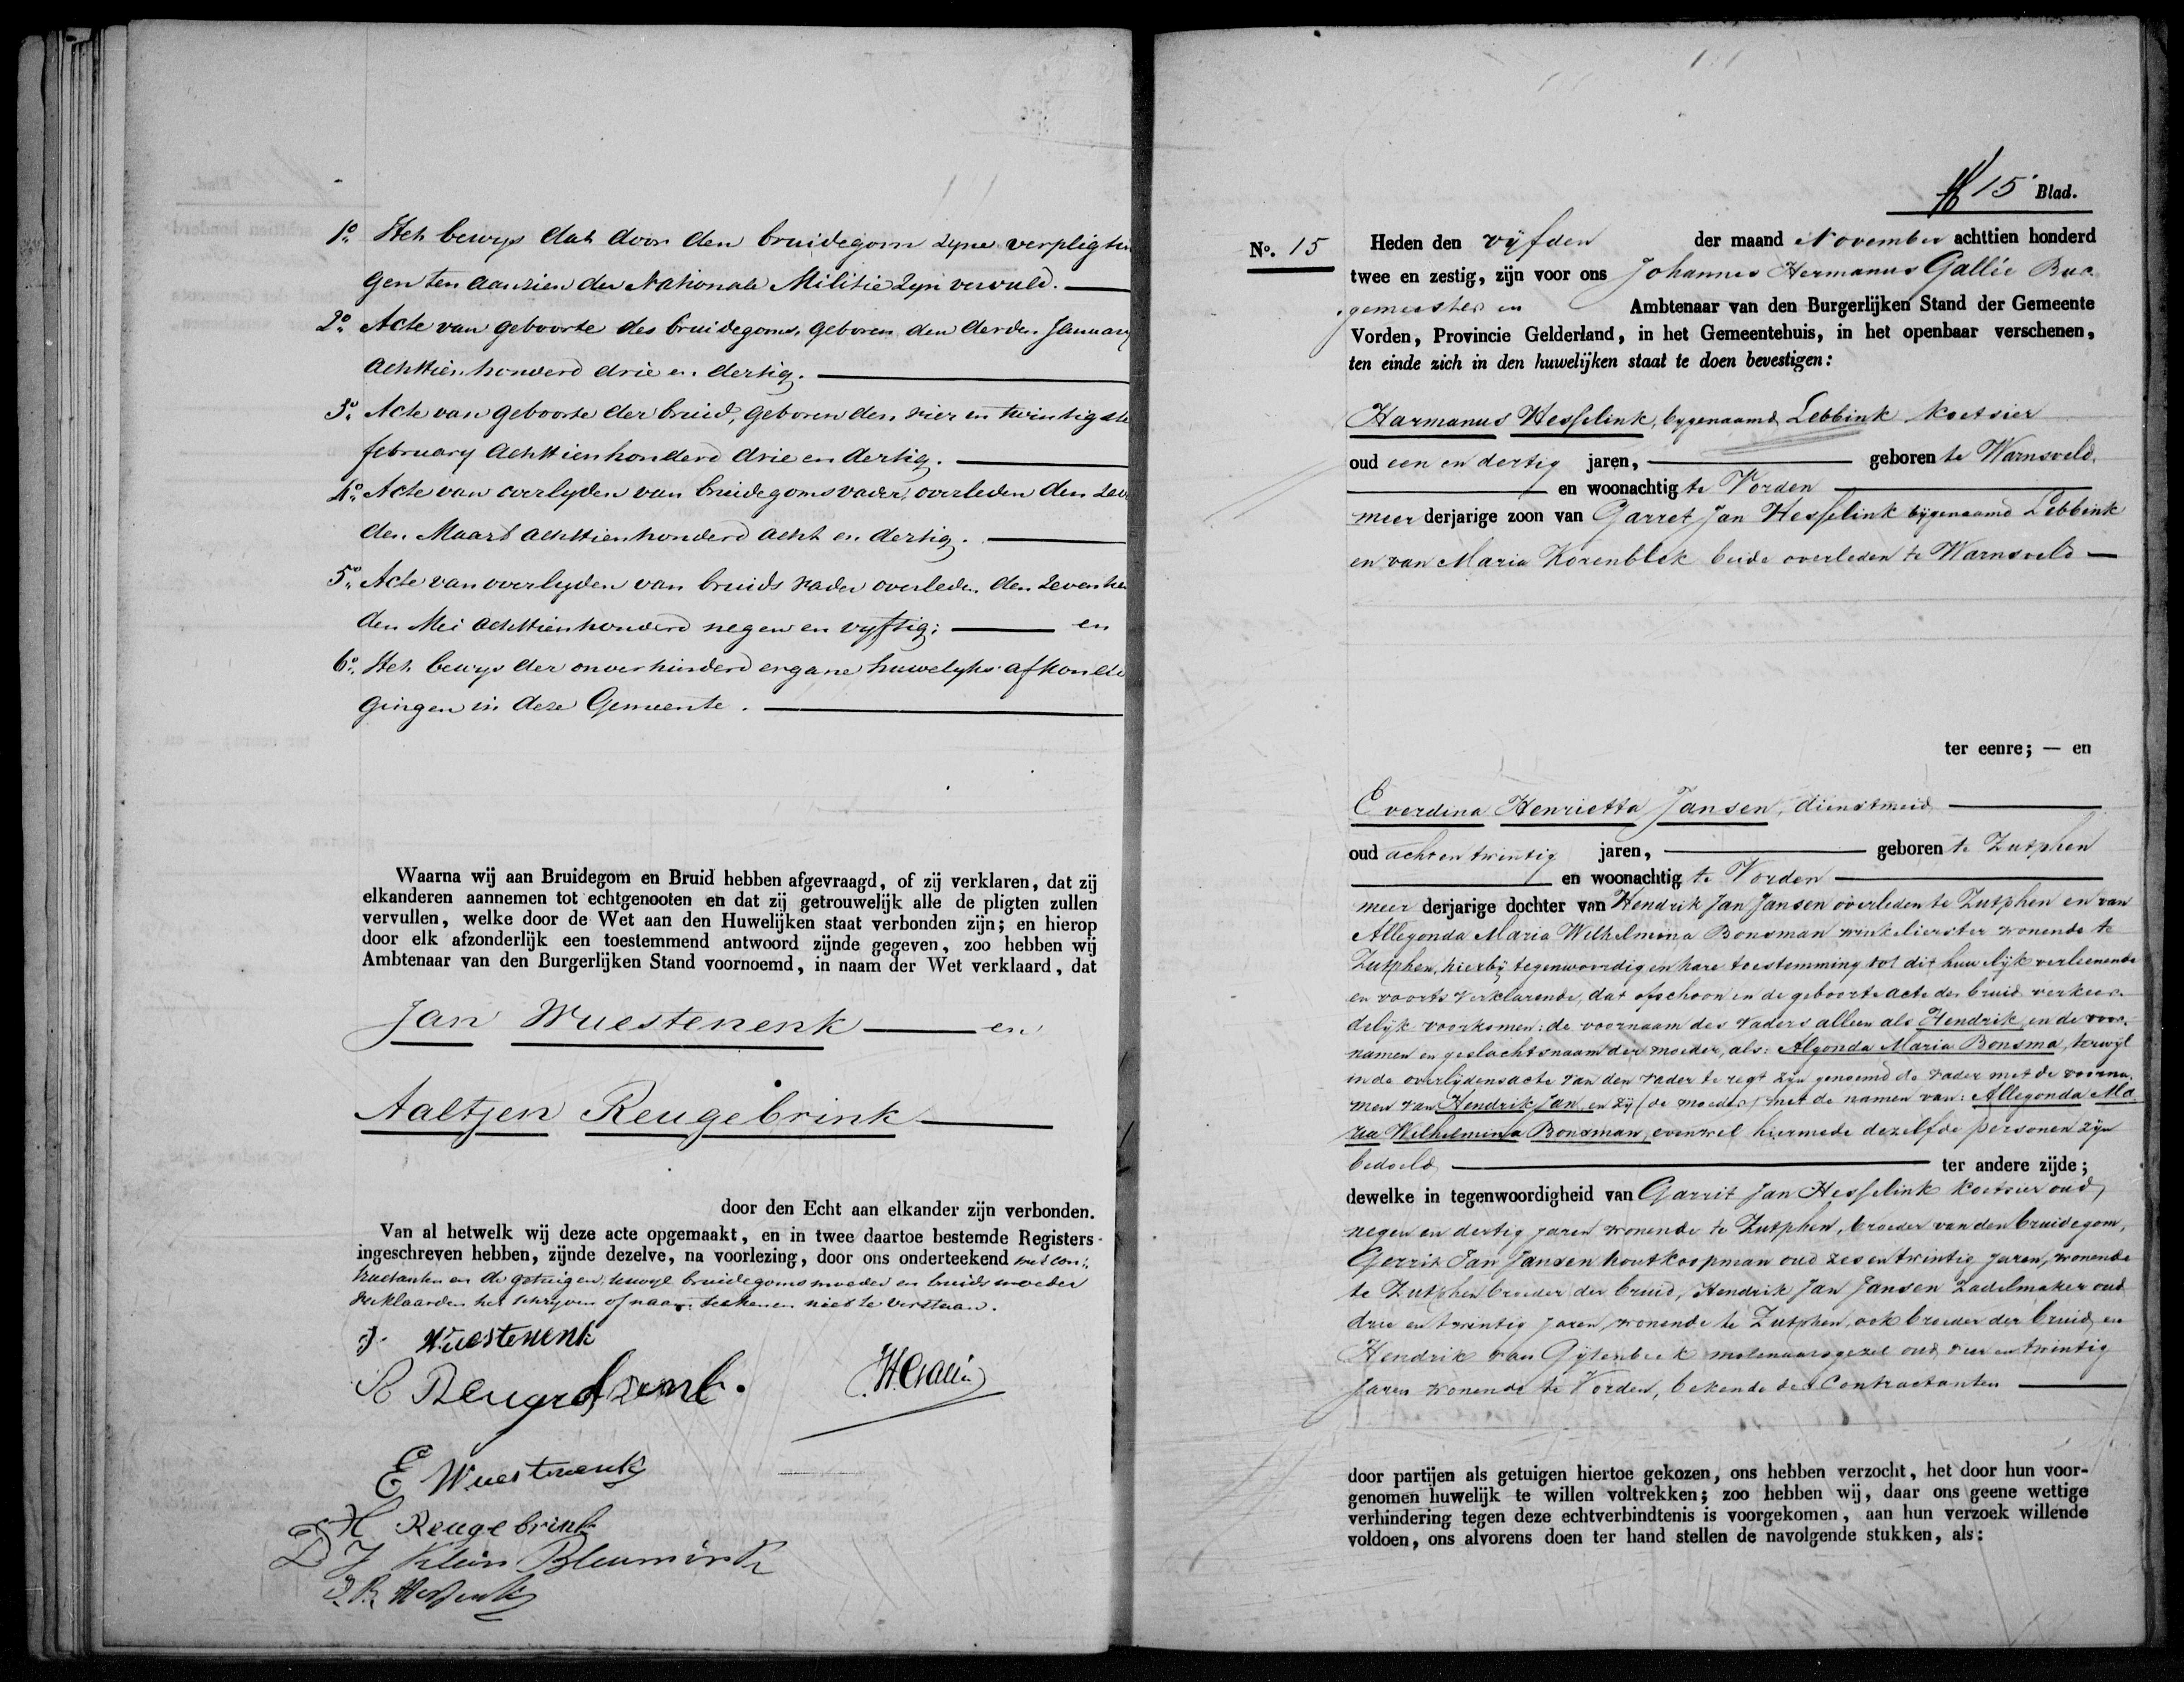 1o. Het bewys dat door den bruidegom zyne verpligtin
gen ten aanzien der Nationale Militie zyn vervuld.
2o. Acte van geboorte des bruidegoms, geboren den derden January
achttienhonderd drie en dertig.
3o. Acte van geboorte der bruid, geboren den vier en twintigste
february achttienhonderd drie en dertig.
4o. Acte van overlyden van bruidegoms vader, overleden den zeven
den Maart achttienhonderd acht en dertig.
5o. Acte van overlyden van bruids vader overleden den zeventien
den Mei achttienhonderd negen en vyftig; en
6o. Het bewys der onverhinderd ergane huwelyks afkondi
gingen in deze Gemeente.
Waarna wij aan Bruidegom en Bruid hebben afgevraagd, of zij verklaren, dat zij
elkanderen aannemen tot echtgenooten en dat zij getrouwelijk alle de pligten zullen
vervullen, welke door de Wet aan den Huwelijken staat verbonden zijn; en hierop
door elk afzonderlijk een toestemmend antwoord zijnde gegeven, zoo hebben wij
Ambtenaar van den Burgerlijken Stand voornoemd, in naam der Wet verklaard, dat
Jan Wuestenenk en
Aaltjen Reugebrink
door den Echt aan elkander zijn verbonden.
Van al hetwelk wij deze acte opgemaakt, en in twee daartoe bestemde Registers
ingeschreven hebben, zijnde dezelve, na voorlezing, door ons onderteekend met con-
tractanten en de getuigen, terwyl bruidegoms moeder en bruids moeder
verklaarden het schryven of naam teekenen niet te verstaan.
J. Wuestenenk
JHGallée
E Wuestenenk
H Reugebrink
D J Klein Bleumink
15 Blad.
No. 15 Heden den vyfden der maand November achttien honderd
twee en zestig, zijn voor ons Johannes Hermanus Gallée Bur
gemeester en Ambtenaar van den Burgerlijken Stand der Gemeente
Vorden, Provincie Gelderland, in het Gemeentehuis, in het openbaar verschenen,
ten einde zich in den huwelijken staat te doen bevestigen:
Harmanus Hesselink, bygenaamd Lebbink koetsier
oud een en dertig jaren, geboren te Warnsveld
en woonachtig te Vorden
meer derjarige zoon van Garret Jan Hesselink bijgenaamd Lebbink
en van Maria Korenblek beide overleden te Warnsveld
ter eenre; — en
Everdina Henrietta Jansen, dienstmeid
oud acht en twintig jaren, geboren te Zutphen
en woonachtig te Vorden
meer derjarige dochter van Hendrik Jan Jansen overleden te Zutphen en van
Allegonda Maria Wilhelmina Bonsman winkelierster wonende te
Zutphen, hierbij tegenwoordig en hare toestemming tot dit huwelijk verleenende
en voorts verklarende, dat ofschoon in de geboorte acte der bruid verkeer-
delijk voorkomen: de voornaam des vaders alleen als Hendrik, en de voor-
namen en geslachtsnaam der moeder, als: Algonda Maria Bonsma, terwijl
in de overlijdensacte van den vader te regt zyn genoemd de vader met de voorna-
men van Hendrik Jan, en zij (de moeder) met de namen van: Allegonda Ma-
ria Wilhelmina Bonsman, evenwel hiermede dezelfde personen zijn
bedoeld ter andere zijde;
dewelke in tegenwoordigheid van Garrit Jan Hesselink koetsier oud
negen en dertig jaren wonende te Zutphen, broeder van den bruidegom,
Gerrit Jan Jansen houtkoopman oud zes en twintig jaren, wonende
te Zutphen broeder der bruid, Hendrik Jan Jansen Zadelmaker oud
drie en twintig jaren, wonende te Zutphen, ook broeder der bruid, en
Hendrik van Gijtenbeek molenaarsgezel oud vier en twintig
jaren wonende te Vorden, bekende der Contractanten
door partijen als getuigen hiertoe gekozen, ons hebben verzocht, het door hun voor-
genomen huwelijk te willen voltrekken; zoo hebben wij, daar ons geene wettige
verhindering tegen deze echtverbindtenis is voorgekomen, aan hun verzoek willende
voldoen, ons alvorens doen ter hand stellen de navolgende stukken, als: